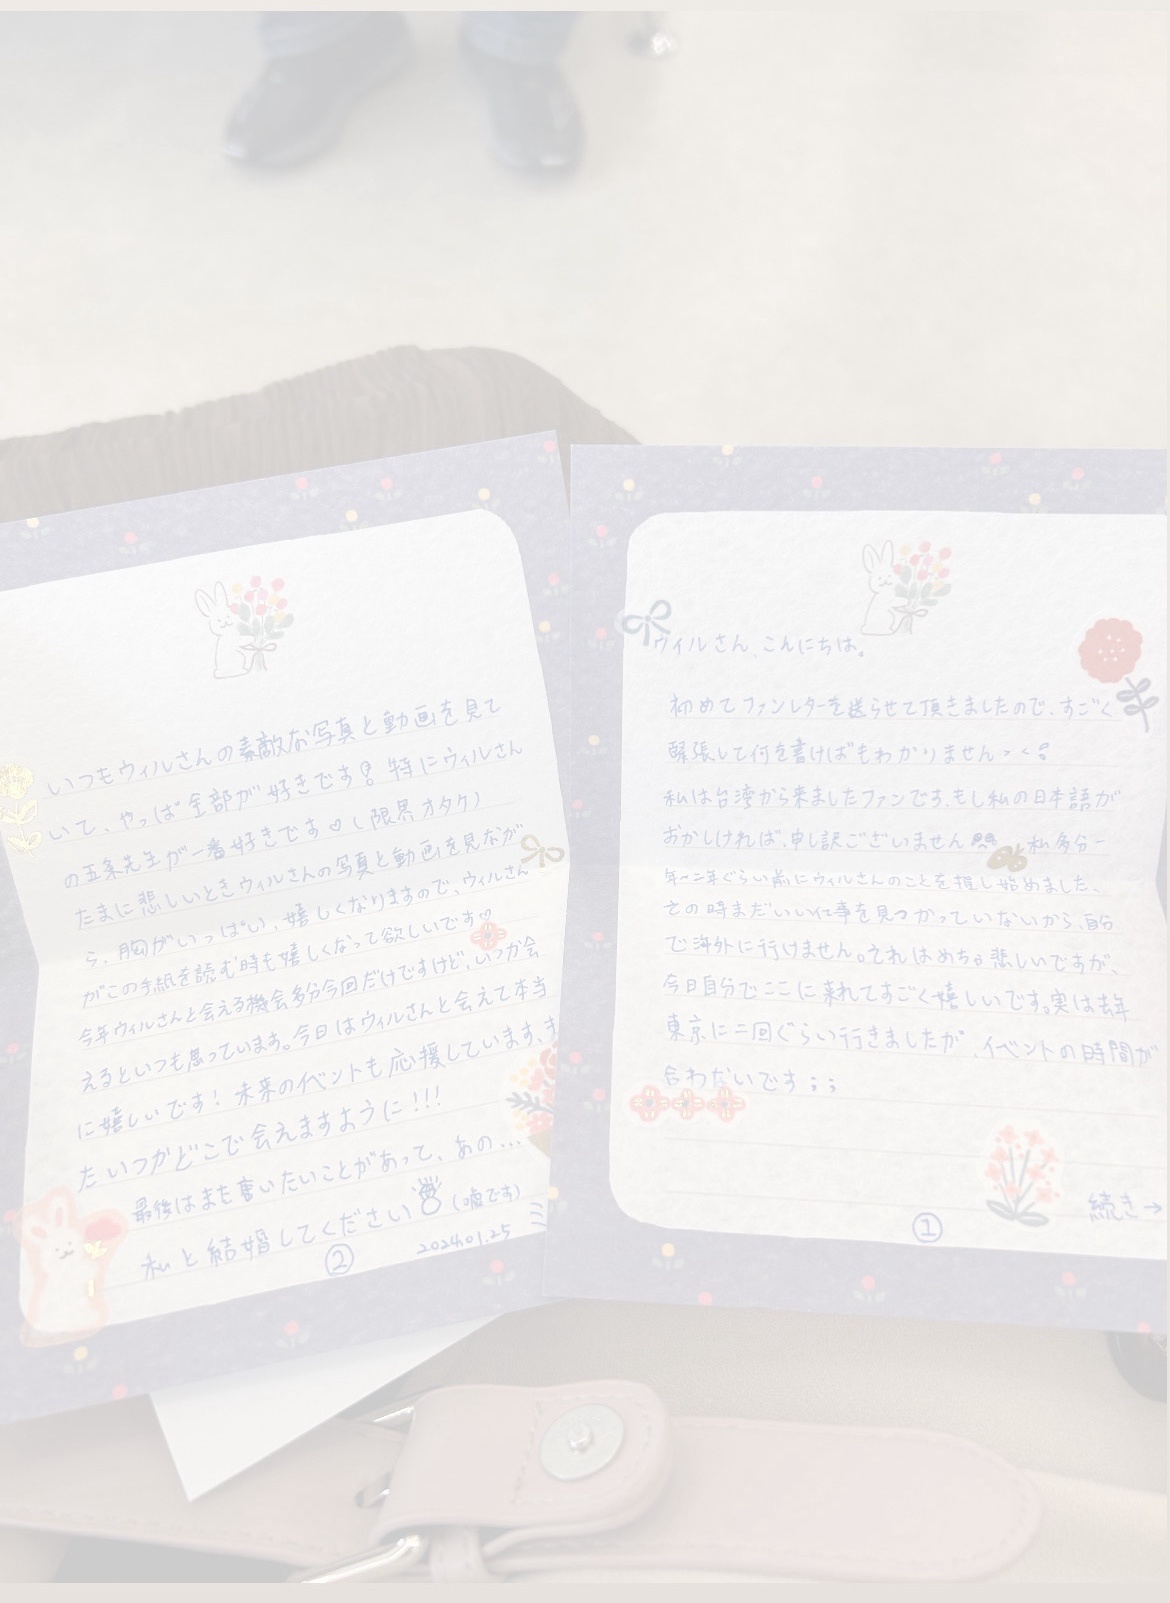 ウィルさん、こんにちは。
初めてファンレターを送らせて頂きましたので、すごく
緊張して何を書けばもわかりません><
私は台湾から来ましたファンです。もし私の日本語が
おかしければ、申し訳ございません 私多分一
年~二年ぐらい前にウィルさんのことを推し始めました、
その時まだいい仕事を見つかっていないから、自分
で海外に行けません。それはめちゃ悲しいですが、
今日自分でここに来れてすごく嬉しいです。実は去年
東京に二回ぐらい行きましたが、イベントの時間が
合わないです;;
続き→
①
いつもウィルさんの素敵な写真と動画を見て
いて、やっぱ全部が好きです! 特にウィルさん
の五条先生が一番好きです♡(限界オタク)
たまに悲しいときウィルさんの写真と動画を見なが
ら、胸がいっぱい、嬉しくなりますので、ウィルさん
がこの手紙を読む時も嬉しくなって欲しいです♡
今年ウィルさんと会える機会多分今回だけですけど、いつか会
えるといつも思っています。今日はウィルさんと会えて本当
に嬉しいです! 未来のイベントも応援しています、ま
たいつかどこで会えますように!!!
最後はまた言いたいことがあって、あの...
私と結婚してください (嘘です)
2024.01.25
②